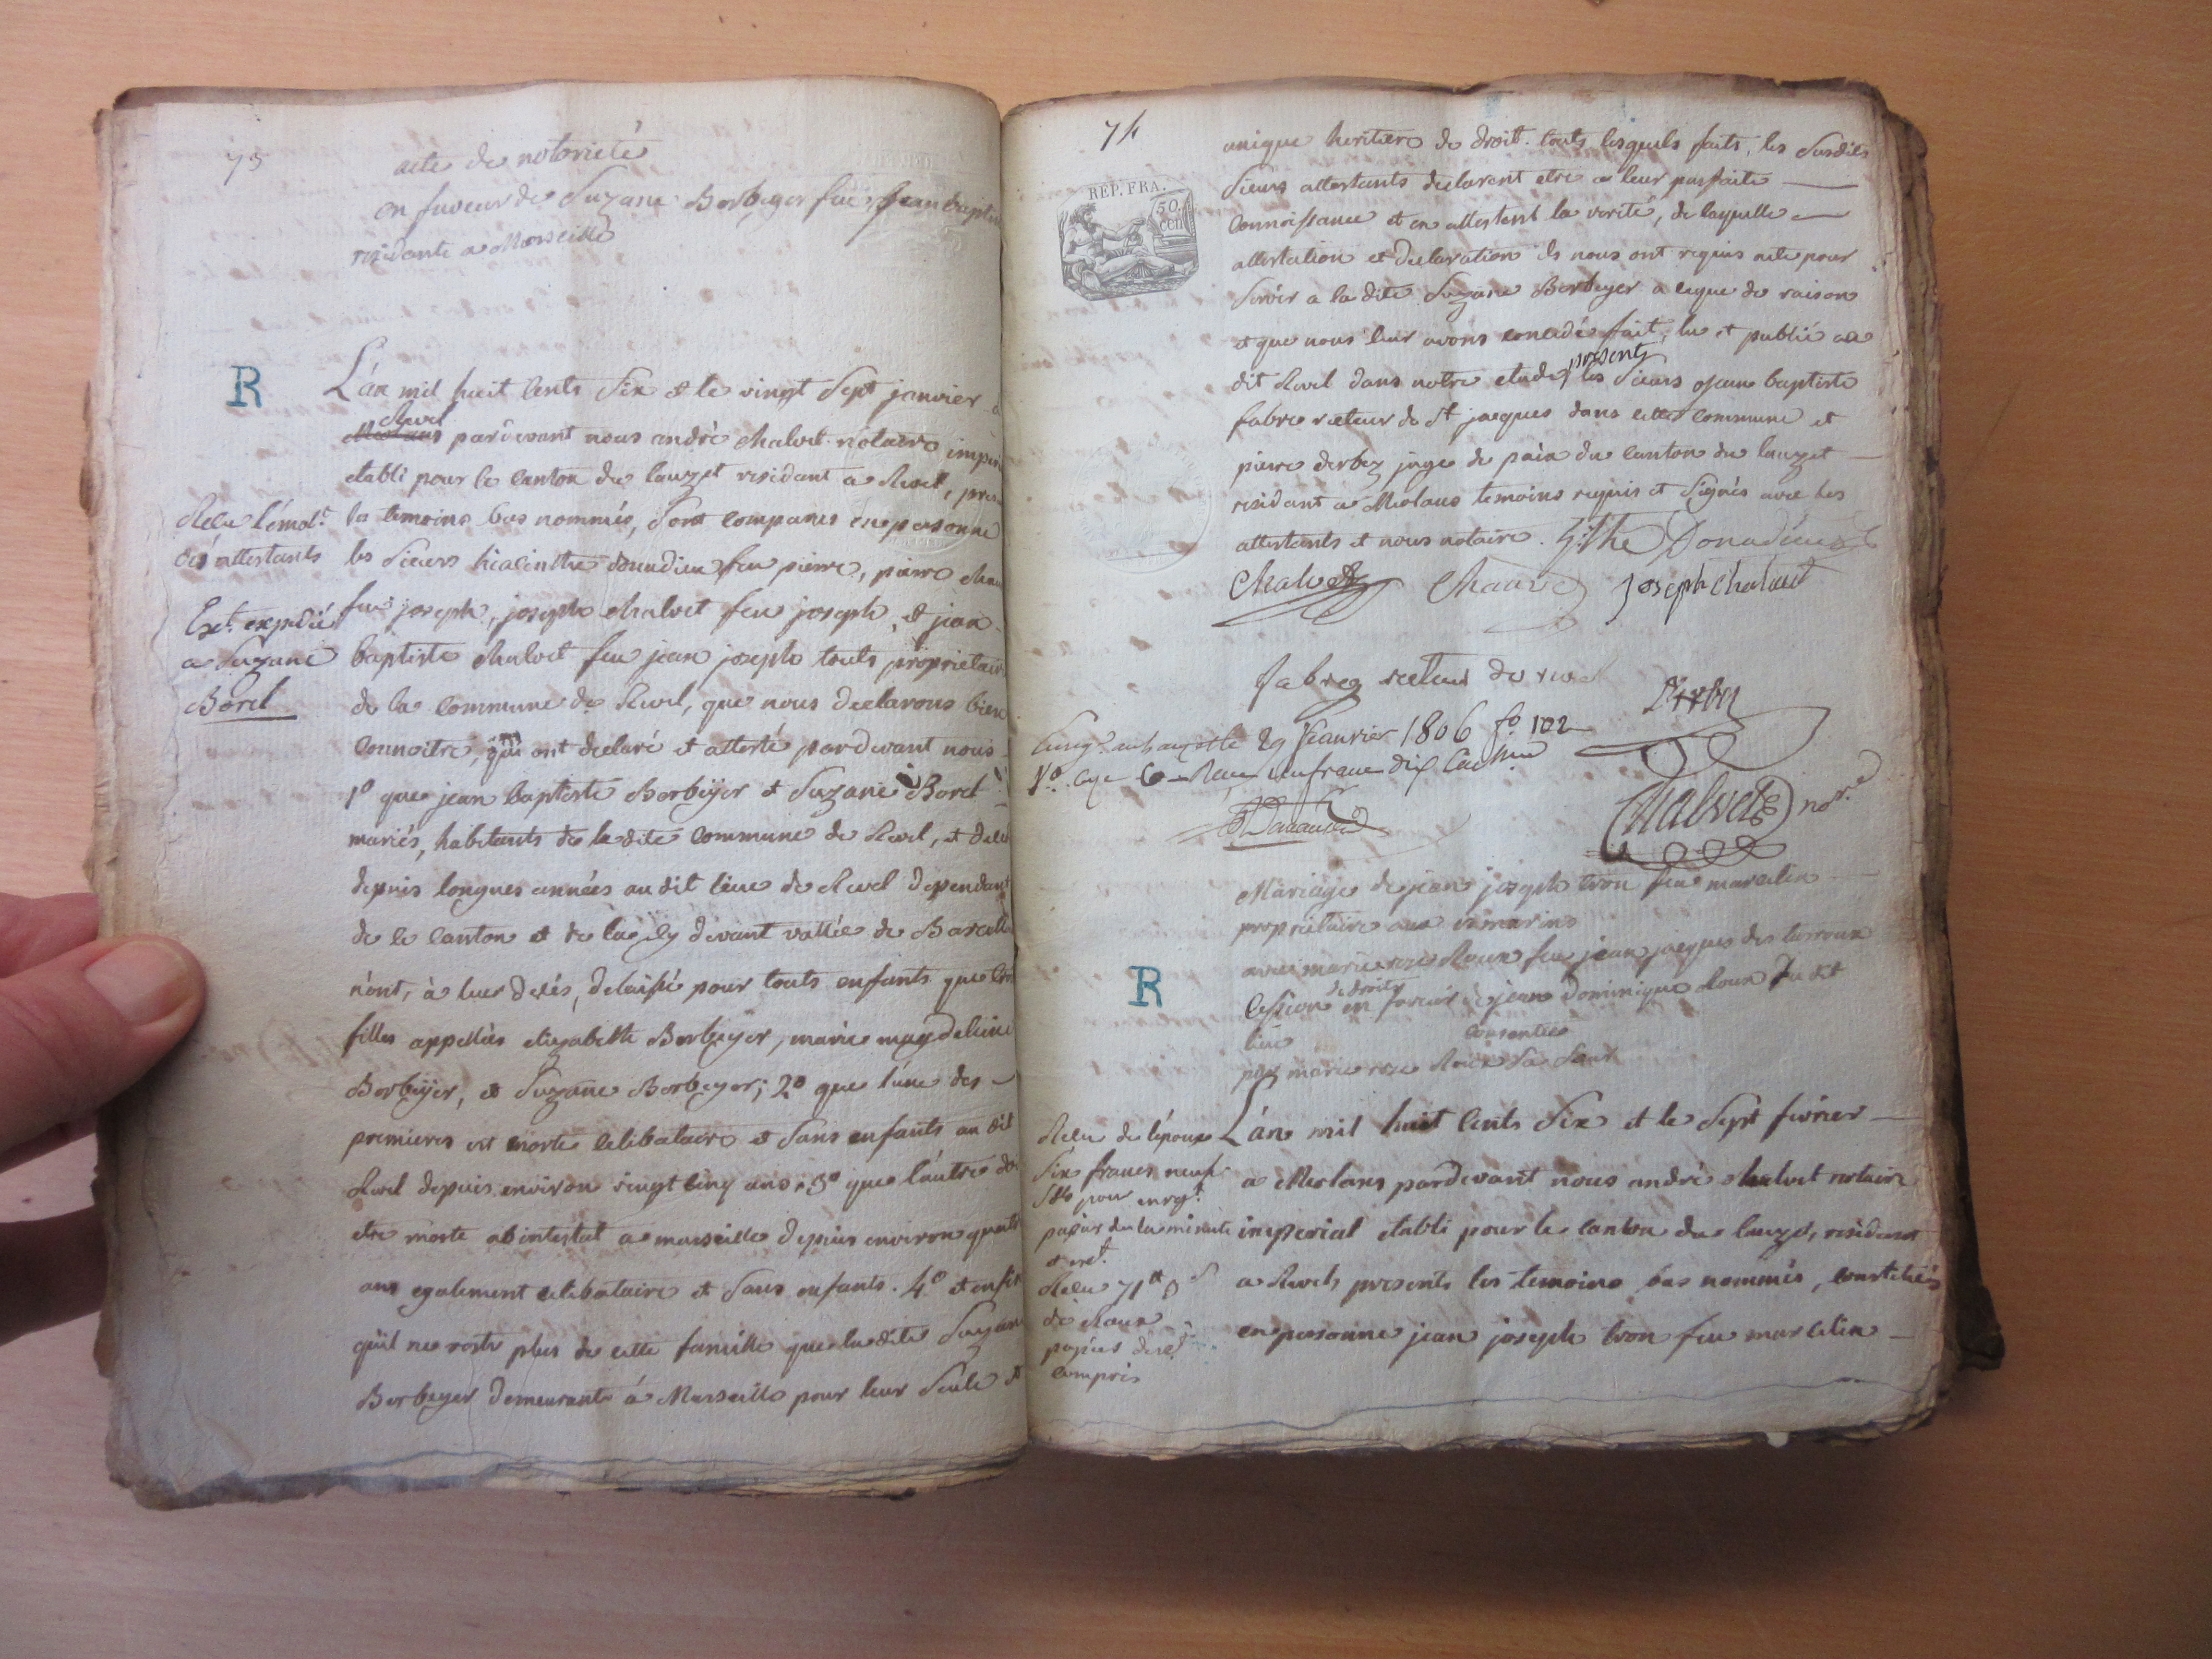 73
acte de notorieté
en faveur de Suzane Borbeyer feu Jean baptis
residante a Marseille
R
L'an mil huit cents six et le vingt sept janvier a
Revel
pardevant nous andré chalvet notaire imper
etabli pour le canton du lauzet residant a Revel, pres
les temoins bas nommés, sont comparus en personne
les sieurs hiacinthe donadieu feu pierre, pierre chau
feu joseph, joseph chalvet feu joseph, et jean
baptiste chalvet feu jean joseph touts proprietair
de la commune de Revel, que nous declarons bien
connoitre, qui ont declaré et attesté pardevant nous
1º que jean baptiste Borbeyer et Suzane Borel
mariés, habitants de la dite commune de Revel, et
depuis longues années au dit lieu de Revel dependant
de ce canton et de la cy devant vallée de Barcello
n'ont, à leur decés, delaissé pour touts enfants que
filles appellées elizabeth Borbeyer, marie magdeleine
Borbeyer, et Suzane Borbeyer; 2º que l'une des
premieres est morte celibataire et sans enfants au dit
Revel depuis environ vingt cinq ans. 3º que l'autre
etre morte abintestat a marseille depuis environ quatre
ans egalement celibataire et sans enfants. 4º et enfin
qu'il ne reste plus de cette famille que la dite Suzane
Borbeyer demeurante á Marseille pour leur seule et
Reçu l'émol.t
des attestants
Ext. expedié
a Suzane
Borel
74
REP. FRA.
50
cen
unique heritiere de droit. touts lesquels faits, les susdits
sieurs attestants declarent etre a leur parfaite
connoissance et en attestent la verité, de laquelle
attestation et declaration ils nous ont requis acte pour
servir a la dite Suzane Borbeyer a ce que de raison
et que nous leur avons concedé fait, lu et publié au
present
dit Revel dans notre etude, les sieurs jean baptiste
fabre recteur de st jacques dans cette commune et
pierre derbez juge de paix du canton du lauzet
residant a Meolans temoins requis et signés avec les
attestants et nous notaire. Donadieu
Chalvet Chauve joseph chalvet
fabre recteur de revel
Derbez
29 Janvier 1806 fº 102
Vº
Chalvet nore
Mariage de jean joseph tron feu marcelin
proprietaire aux
avec marie rose Roux feu jean jacques des
de droits
R
Cession en faveur de jean dominique Roux du dit
lieu
consentie
par marie rose Roux sa sœur
L'an mil huit cents six et le sept fevrier
a Meolans pardevant nous andré chalvet notaire
imperial etabli pour le canton du lauzet, residant
a Revel, presents les temoins bas nommés, constitués
en personne jean joseph tron feu marcelin
Reçu de l'epoux
six francs neuf
pour enrg.t
papier de la minute
Reçu 71
de Roux
papier
compris